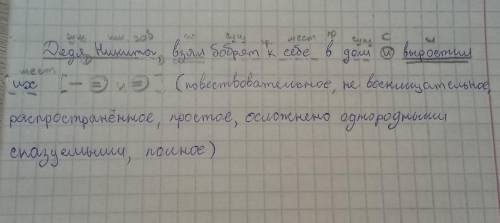 сущ им зав гл сущ пр мест пр сущ с гл
Дядя, Никита, взял бобрят к себе в дом и вырастил
мест их [- =, =] (повествовательное, не восклицательное,
распространённое, простое, осложнено однородными
сказуемыми, полное)